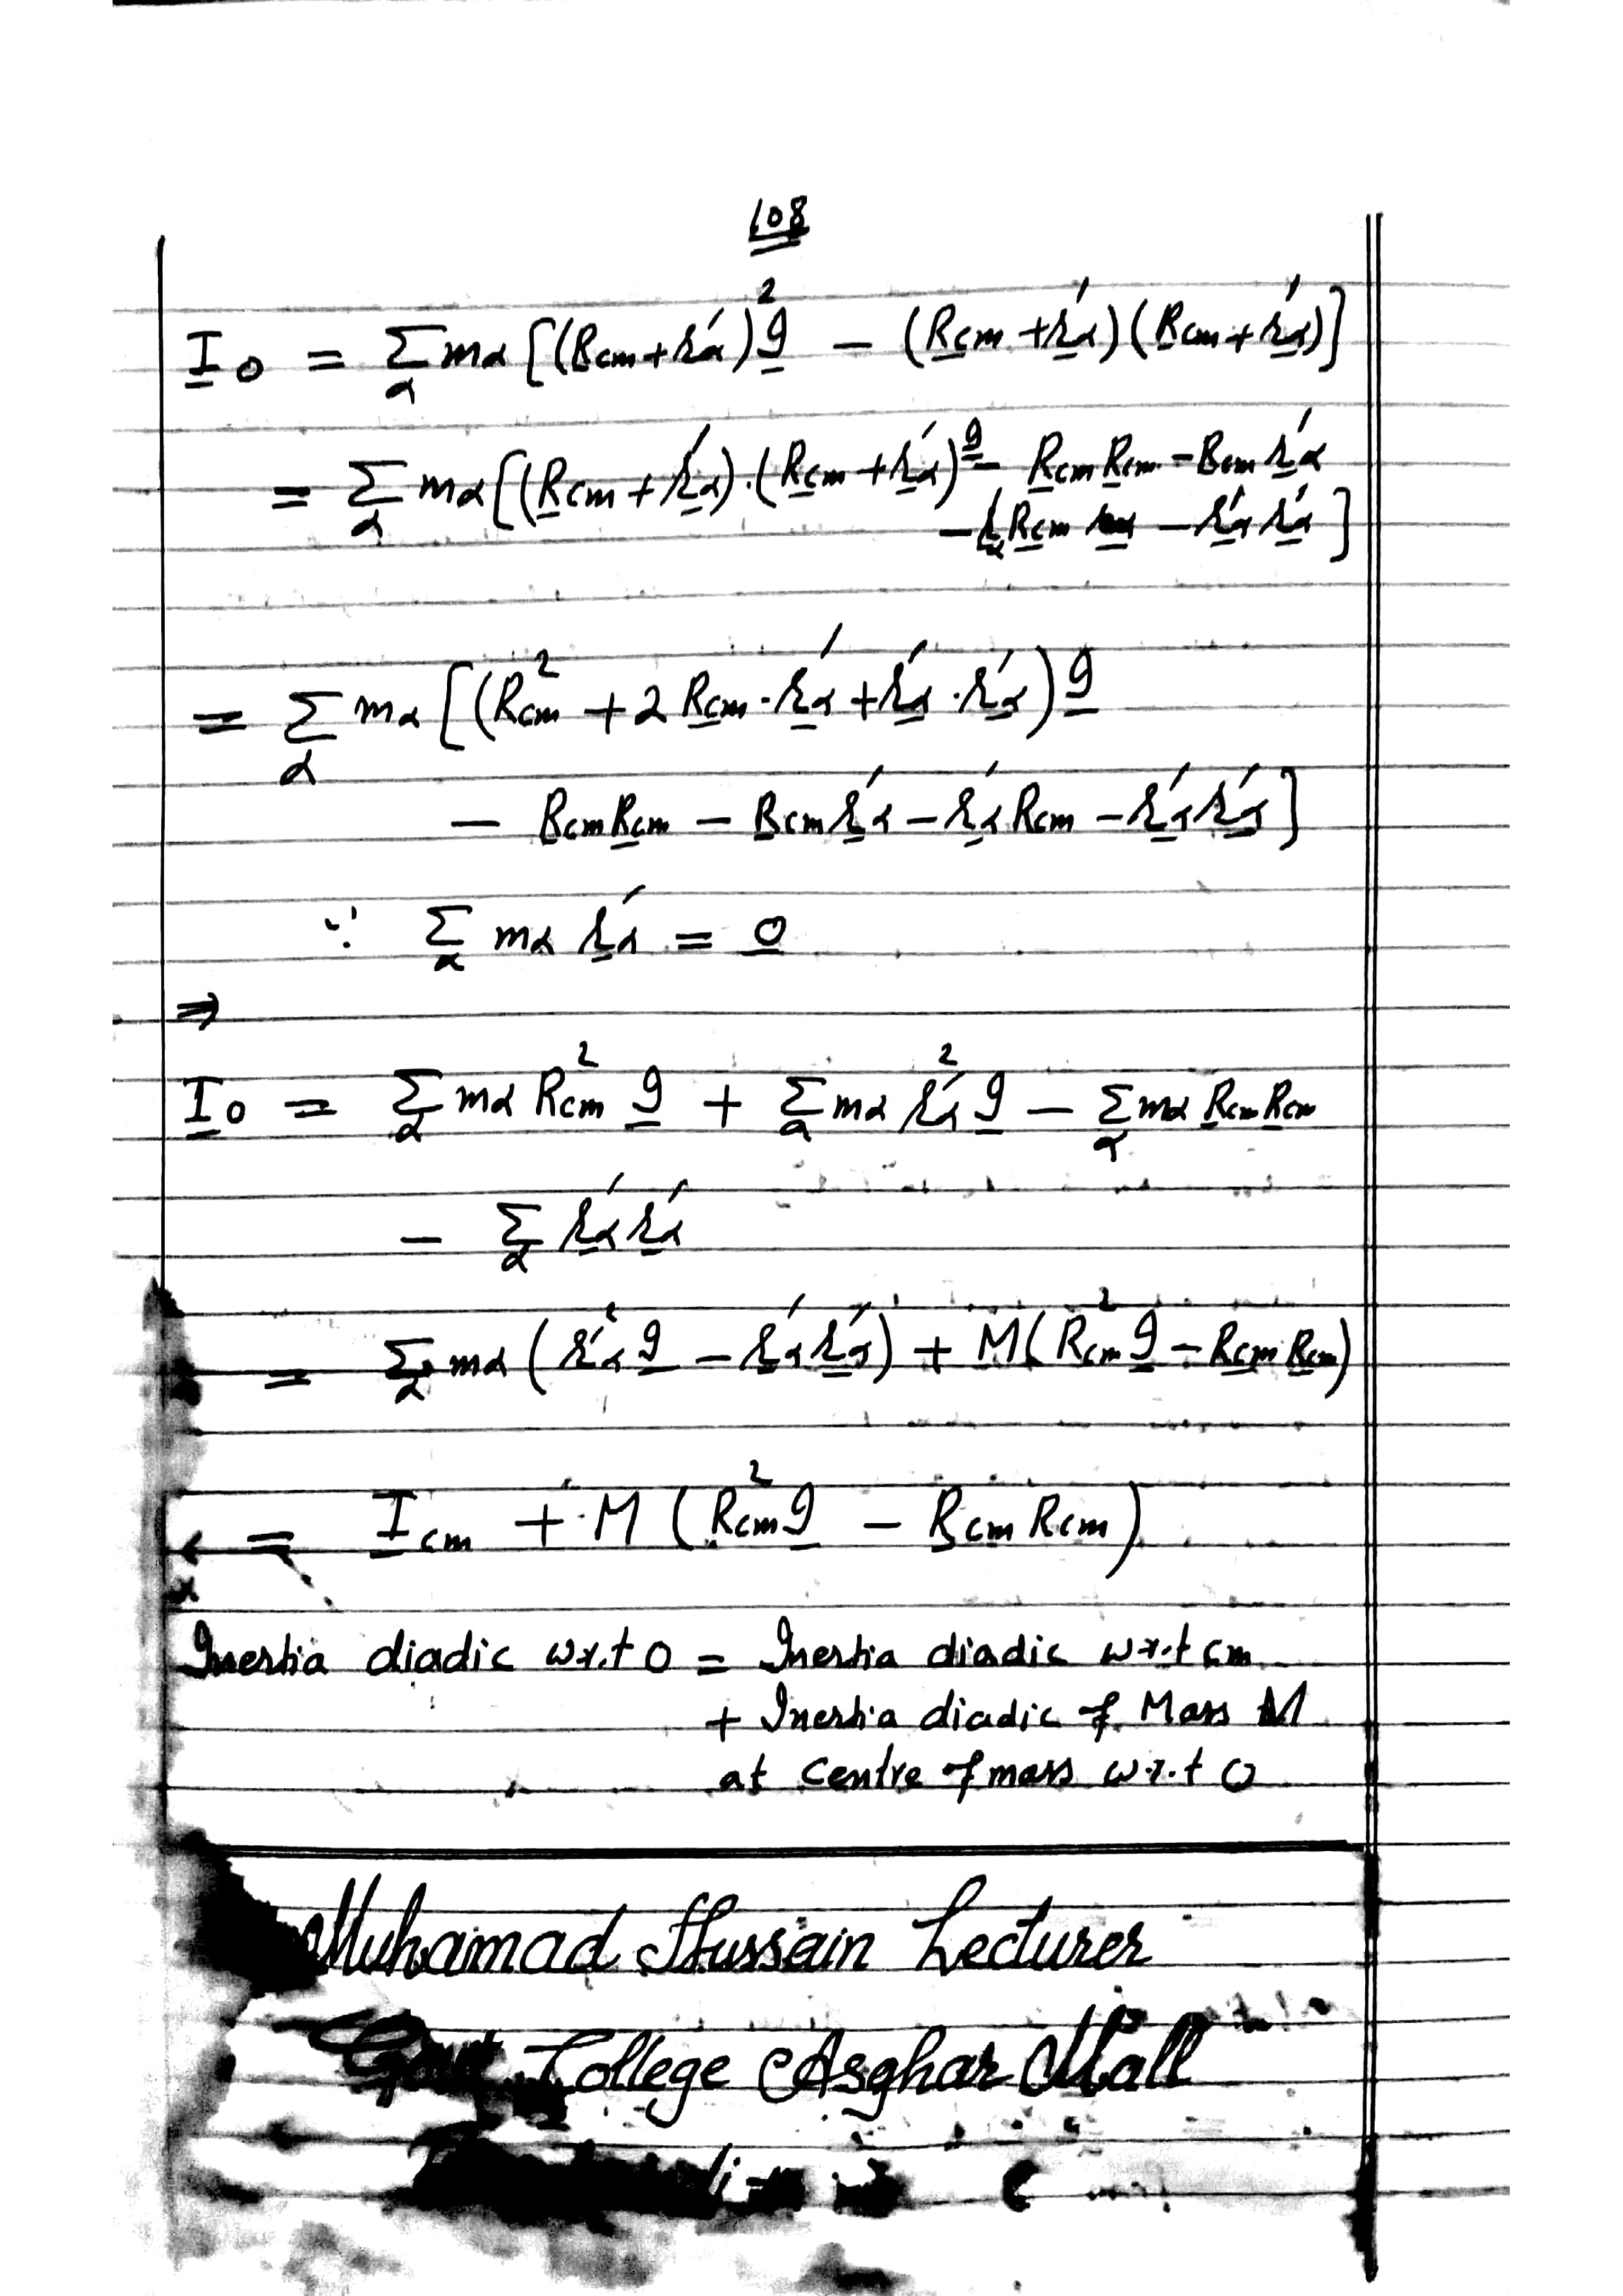 108
I̲o = Σα mα [(Rcm + r′α)² I̲ − (R̲cm + r̲′α)(R̲cm + r̲′α)]
= Σα mα [(R̲cm + r̲′α)·(R̲cm + r̲′α) I̲ − R̲cm R̲cm − Rcm r̲′α
− r̲α R̲cm − r̲′α r̲′α]
= Σα mα [(R²cm + 2 R̲cm · r̲′α + r̲′α · r̲′α) I̲
− Rcm R̲cm − Rcm r̲′α − r̲′α Rcm − r̲′α r̲′α]
∵ Σα mα r̲′α = 0̲
⇒
I̲o = Σα mα R²cm I̲ + Σα mα r′²α I̲ − Σα mα R̲cm R̲cm
− Σα r̲′α r̲′α
= Σα mα (r′²α I̲ − r̲′α r̲′α) + M(R²cm I̲ − R̲cm R̲cm)
= I̲cm + M (R²cm I̲ − R̲cm Rcm)
Inertia diadic w.r.t O = Inertia diadic w.r.t cm
+ Inertia diadic of Mass M
at centre of mass w.r.t O
Muhamad Hussain Lecturer
Govt College Asghar Mall